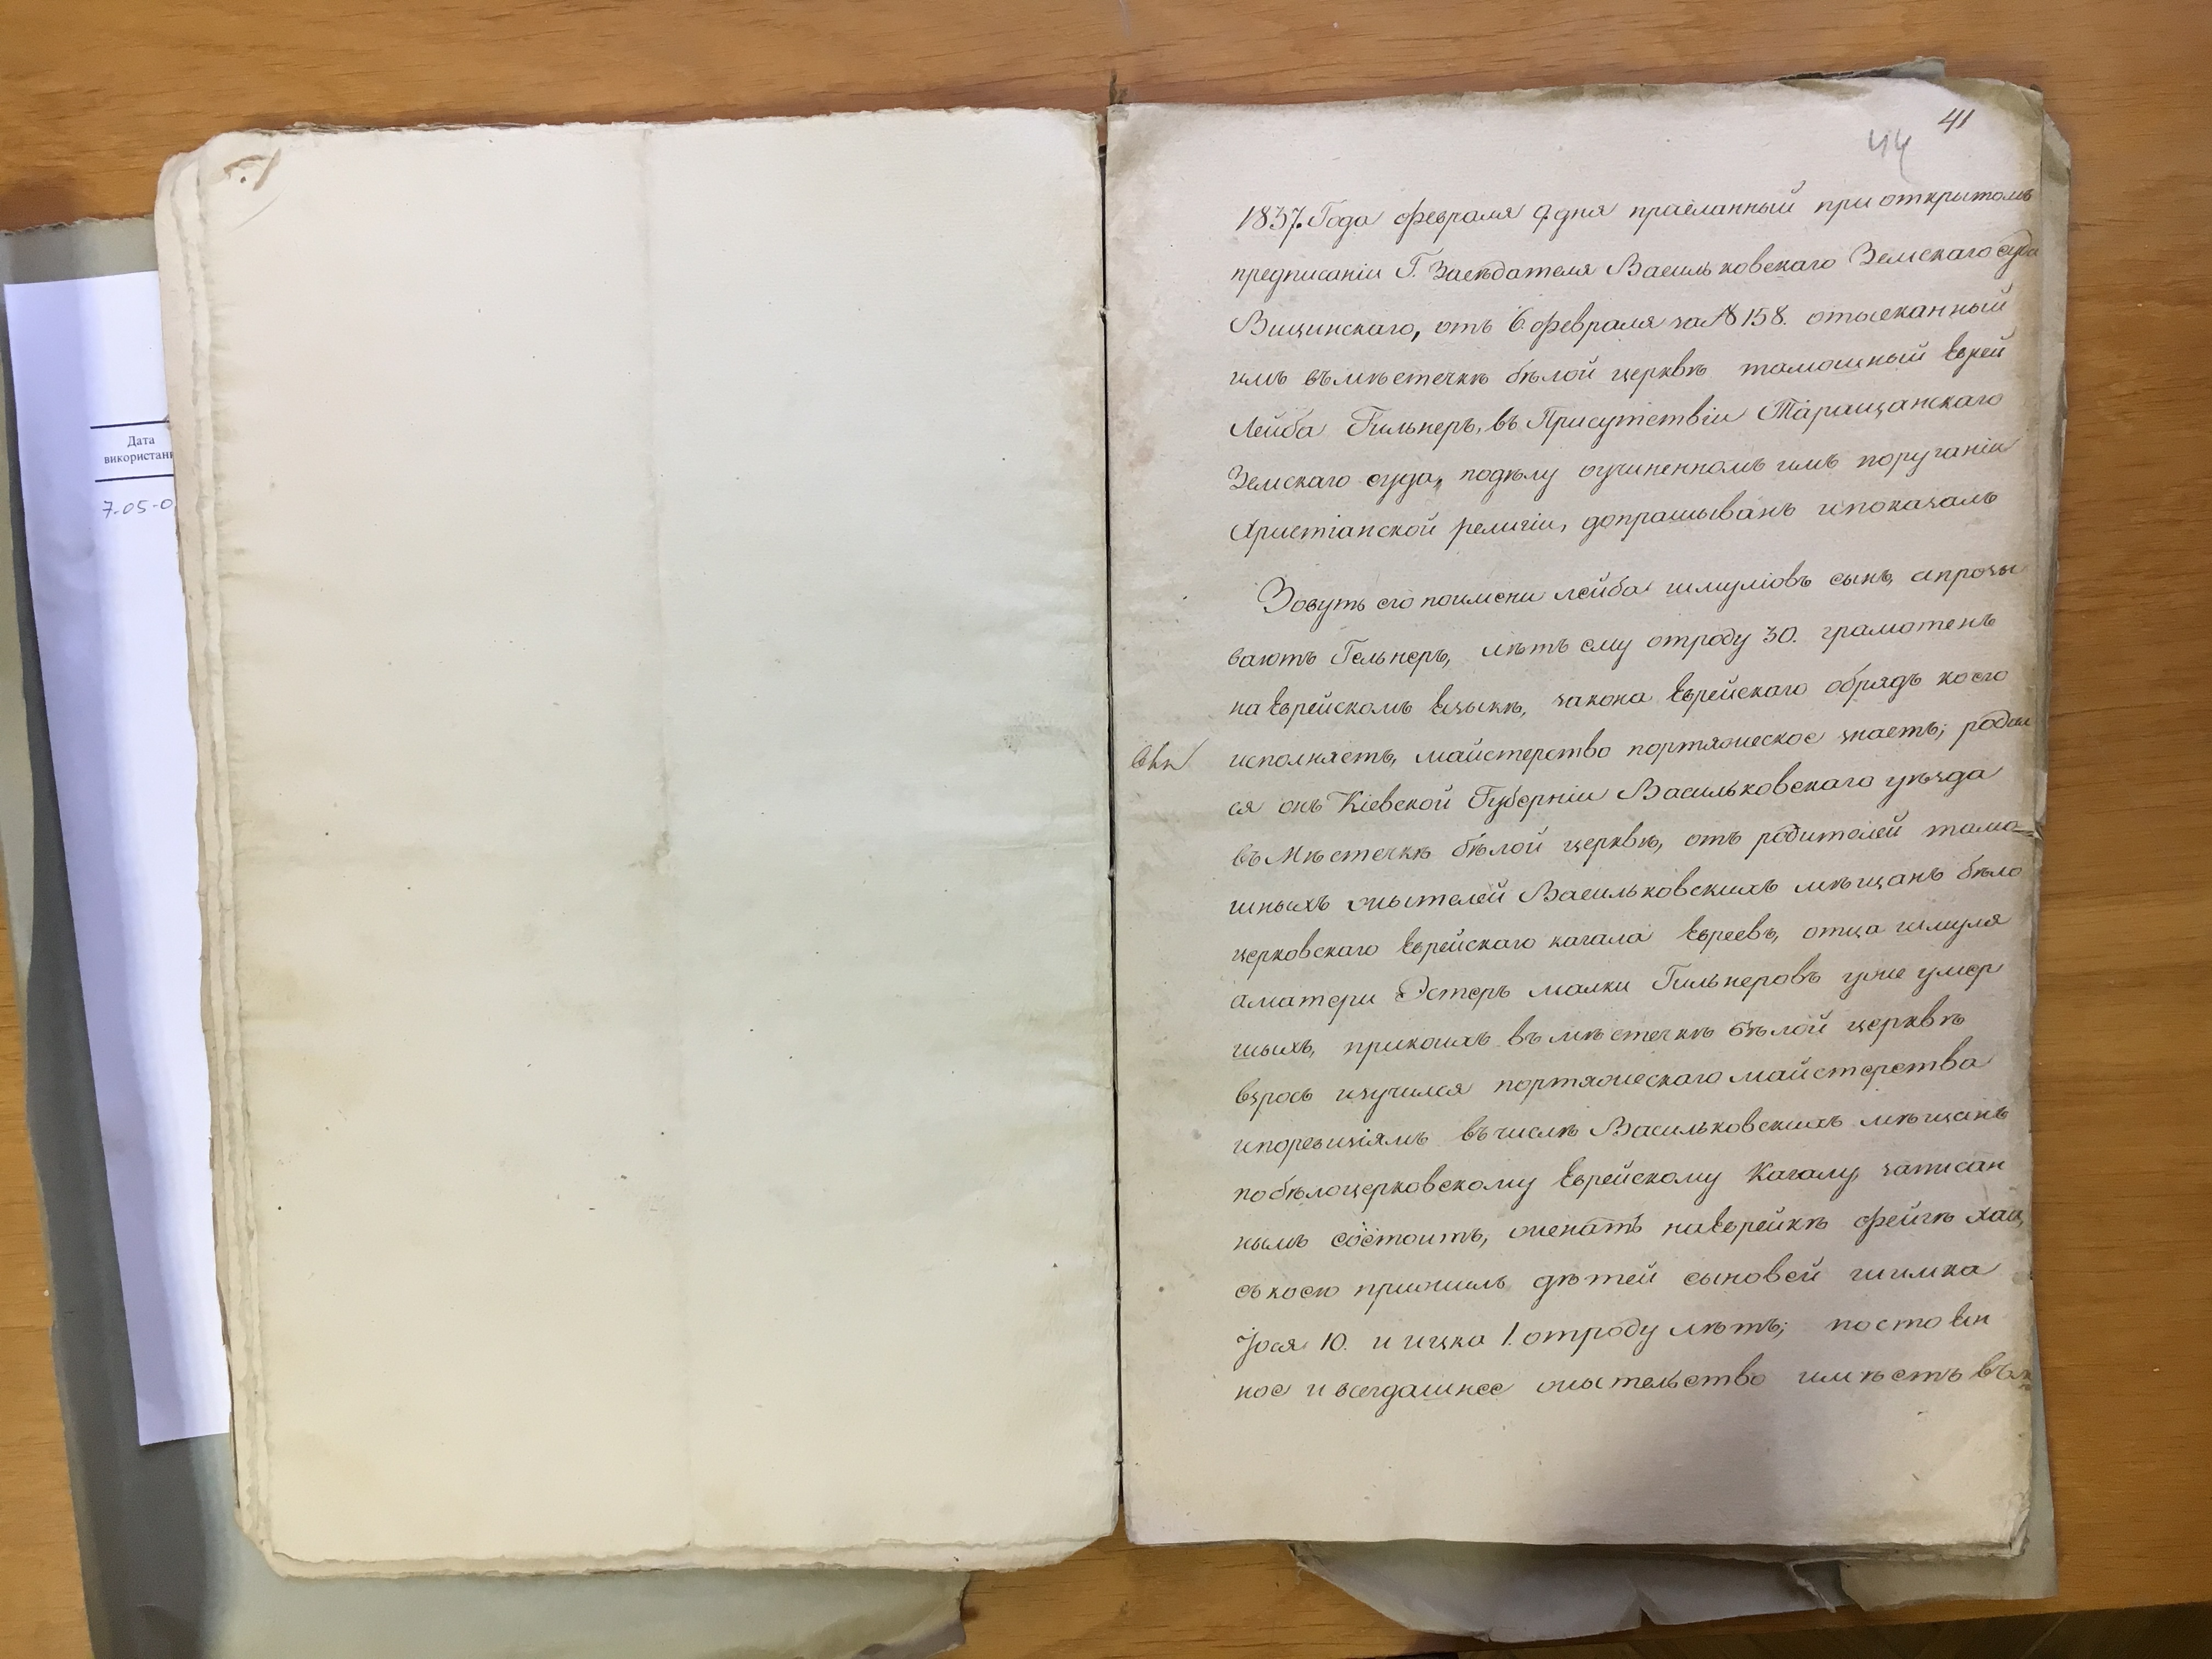 Дата
використан
7-05-0
41
44
1837. Года февраля 9 дня присланный при открытомъ
предписаніи Г. Засѣдателя Васильковскаго Земскаго суда
Вищинскаго, отъ 6. февраля за № 158. отысканный
имъ въ мѣстечкѣ бѣлой церквѣ тамошный Еврей
Лейба Гильнеръ, въ Присутствіи Таращанскаго
Земскаго суда, подѣлу оучиненномъ имъ поруганіи
Христіанской религіи, допрашыванъ ипоказалъ
Зовутъ его поимени лейба шмуліовъ сынъ, апрозы
ваютъ Гельнеръ, лѣтъ ему отроду 30. грамотенъ
на Еврейскомъ Езыкѣ, закона Еврейскаго обрядъ коего
исполняетъ, майстерство портяжеское знаетъ; родил
ся онъ Кіевской Губерніи Васильковскаго уѣзда
въ Мѣстечкѣ бѣлой церквѣ, отъ родителей тамо=
шныхъ жытелей Васильковскихъ мѣщанъ бѣло
церковскаго Еврейскаго кагала Евреевъ, отца шмуля
аматери Эстеръ малки Гильнеровъ уже умер
шыхъ, прикоихъ въ мѣстечкѣ бѣлой церквѣ
взросъ изучился портяжескаго майстерства
иноревизіямъ въ числѣ Васильковскихъ мѣщанъ
побѣлоцерковскому Еврейскому Кагалу записан
нымъ состоитъ, женатъ наЕврейкѣ фейгѣ хаи,
съ коею прижилъ дѣтей сыновей шимка
Іося 10. и ицка 1. отроду лѣтъ; постоЕн
ное и всегдашнее жытельство имѣетъ въ